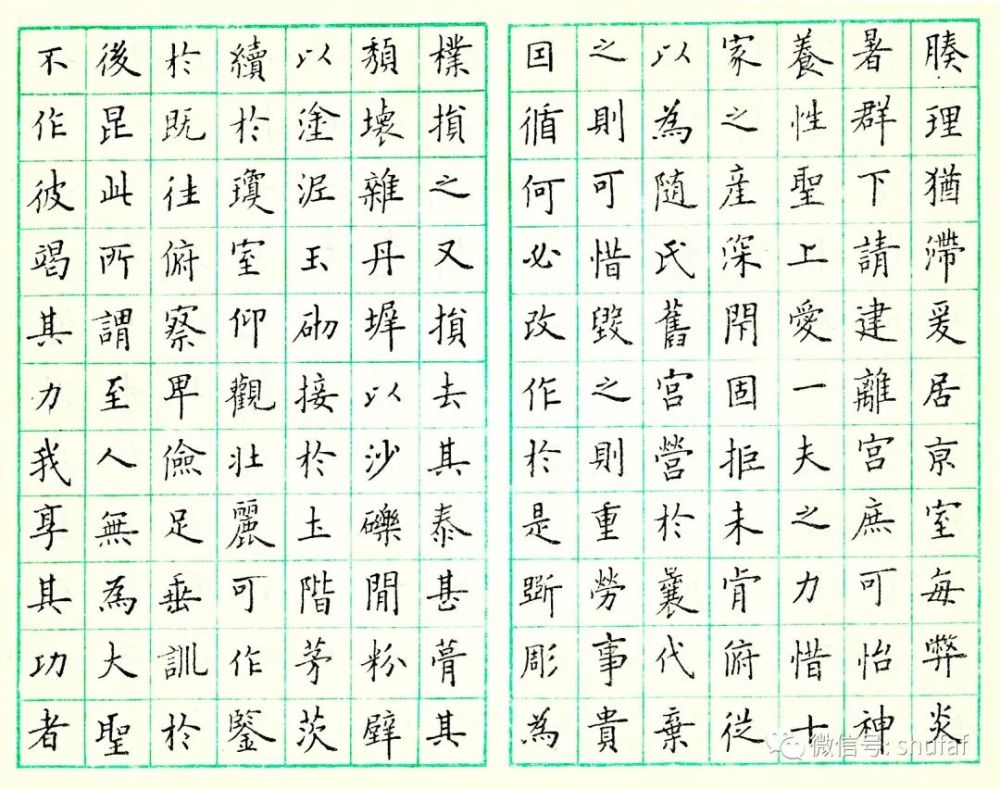 腠理猶滯爰居亰室每弊炎
暑群下請建離宮庶可怡神
養性聖上愛一夫之力惜十
家之産深閇固拒未肯俯從
以為隨氏舊宮營於曩代棄
之則可惜毀之則重勞事貴
囙循何必改作於是斲彫為
樸損之又損去其泰甚葺其
頹壞雜丹墀以沙礫閒粉壁
以塗泥玉砌接於土階茅茨
續於瓊室仰觀壯麗可作鑒
於既往俯察卑儉足垂訓於
後昆此所謂至人無為大聖
不作彼竭其力我享其功者
微信号: shufaf